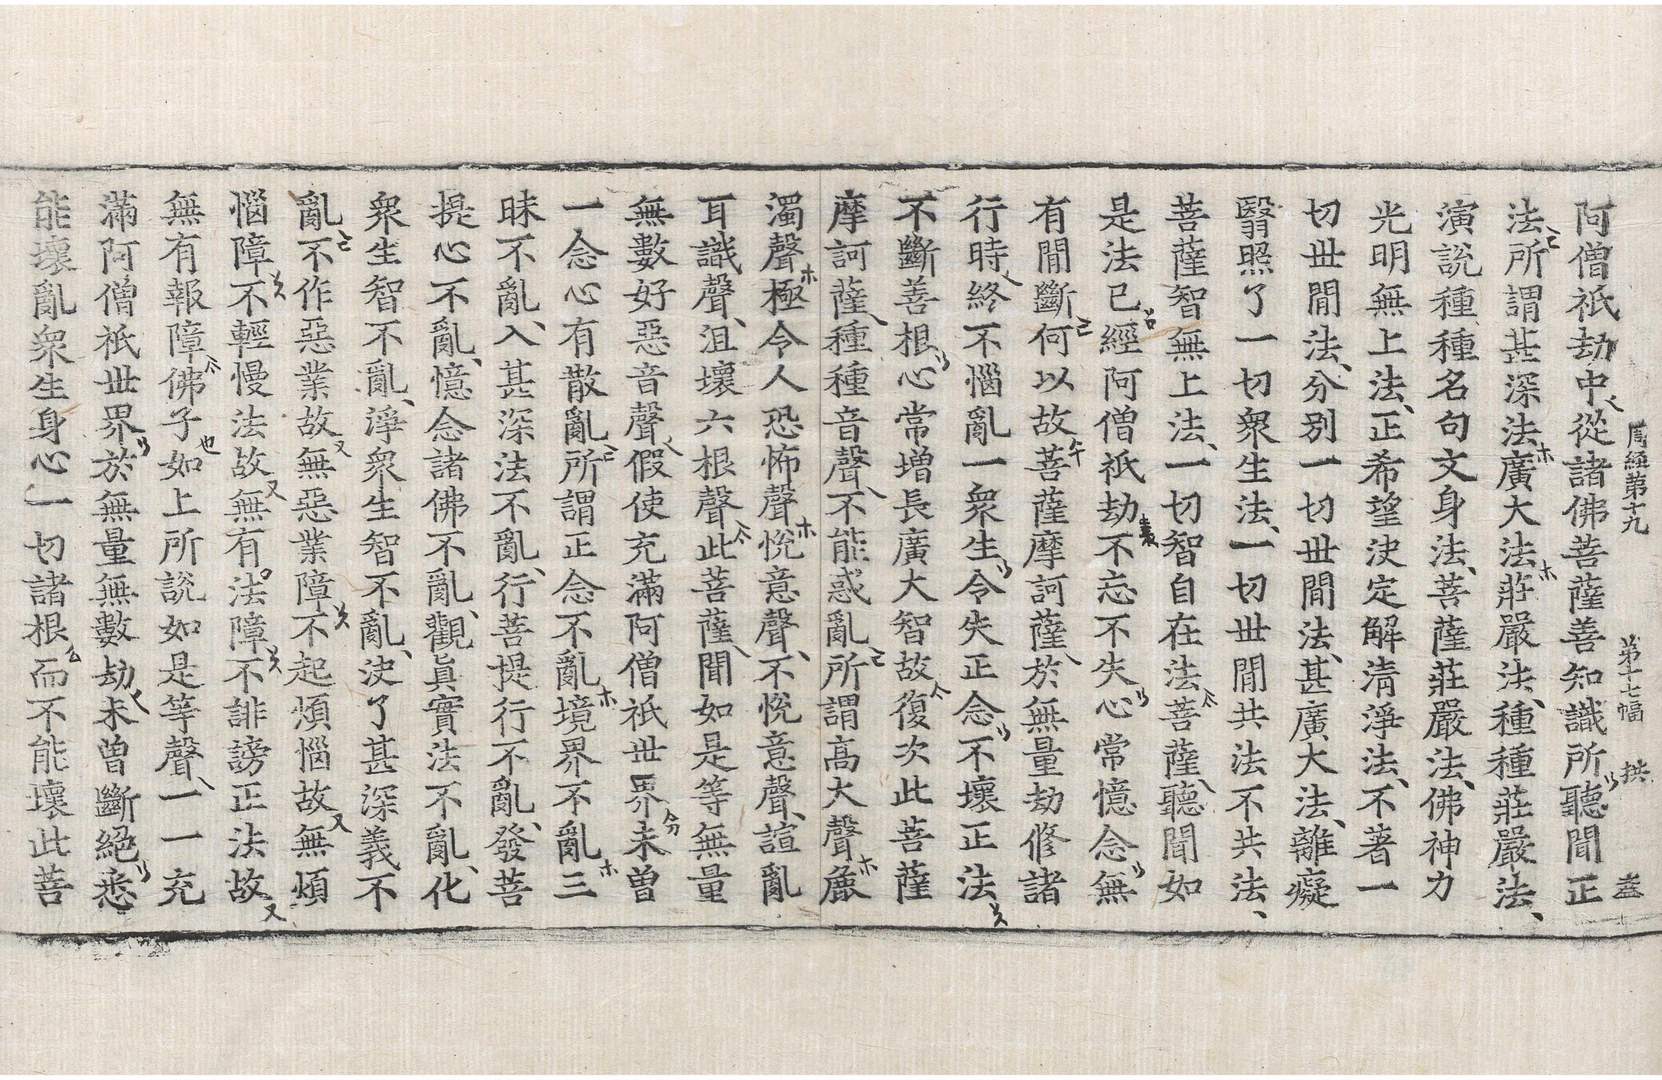 周經第十九　第十七幅　拱
阿僧祇劫中從諸佛菩薩善知識所聽聞正
法所謂甚深法廣大法莊嚴法種種莊嚴法
演說種種名句文身法菩薩莊嚴法佛神力
光明無上法正希望決定解清淨法不著一
切世間法分別一切世間法甚廣大法離癡
翳照了一切衆生法一切世間共法不共法
菩薩智無上法一切智自在法菩薩聽聞如
是法已經阿僧祇劫不忘不失心常憶念無
有間斷何以故菩薩摩訶薩於無量劫修諸
行時終不惱亂一衆生令失正念不壞正法
不斷善根心常增長廣大智故復次此菩薩
摩訶薩種種音聲不能惑亂所謂高大聲麁
濁聲極令人恐怖聲悅意聲不悅意聲諠亂
耳識聲沮壞六根聲此菩薩聞如是等無量
無數好惡音聲假使充滿阿僧祇世界未曾
一念心有散亂所謂正念不亂境界不亂三
昧不亂入甚深法不亂行菩提行不亂發菩
提心不亂憶念諸佛不亂觀眞實法不亂化
衆生智不亂淨衆生智不亂決了甚深義不
亂不作惡業故無惡業障不起煩惱故無煩
惱障不輕慢法故無有法障不誹謗正法故
無有報障佛子如上所說如是等聲一一充
滿阿僧祇世界於無量無數劫未曾斷絕悉
能壞亂衆生身心一切諸根而不能壞此菩